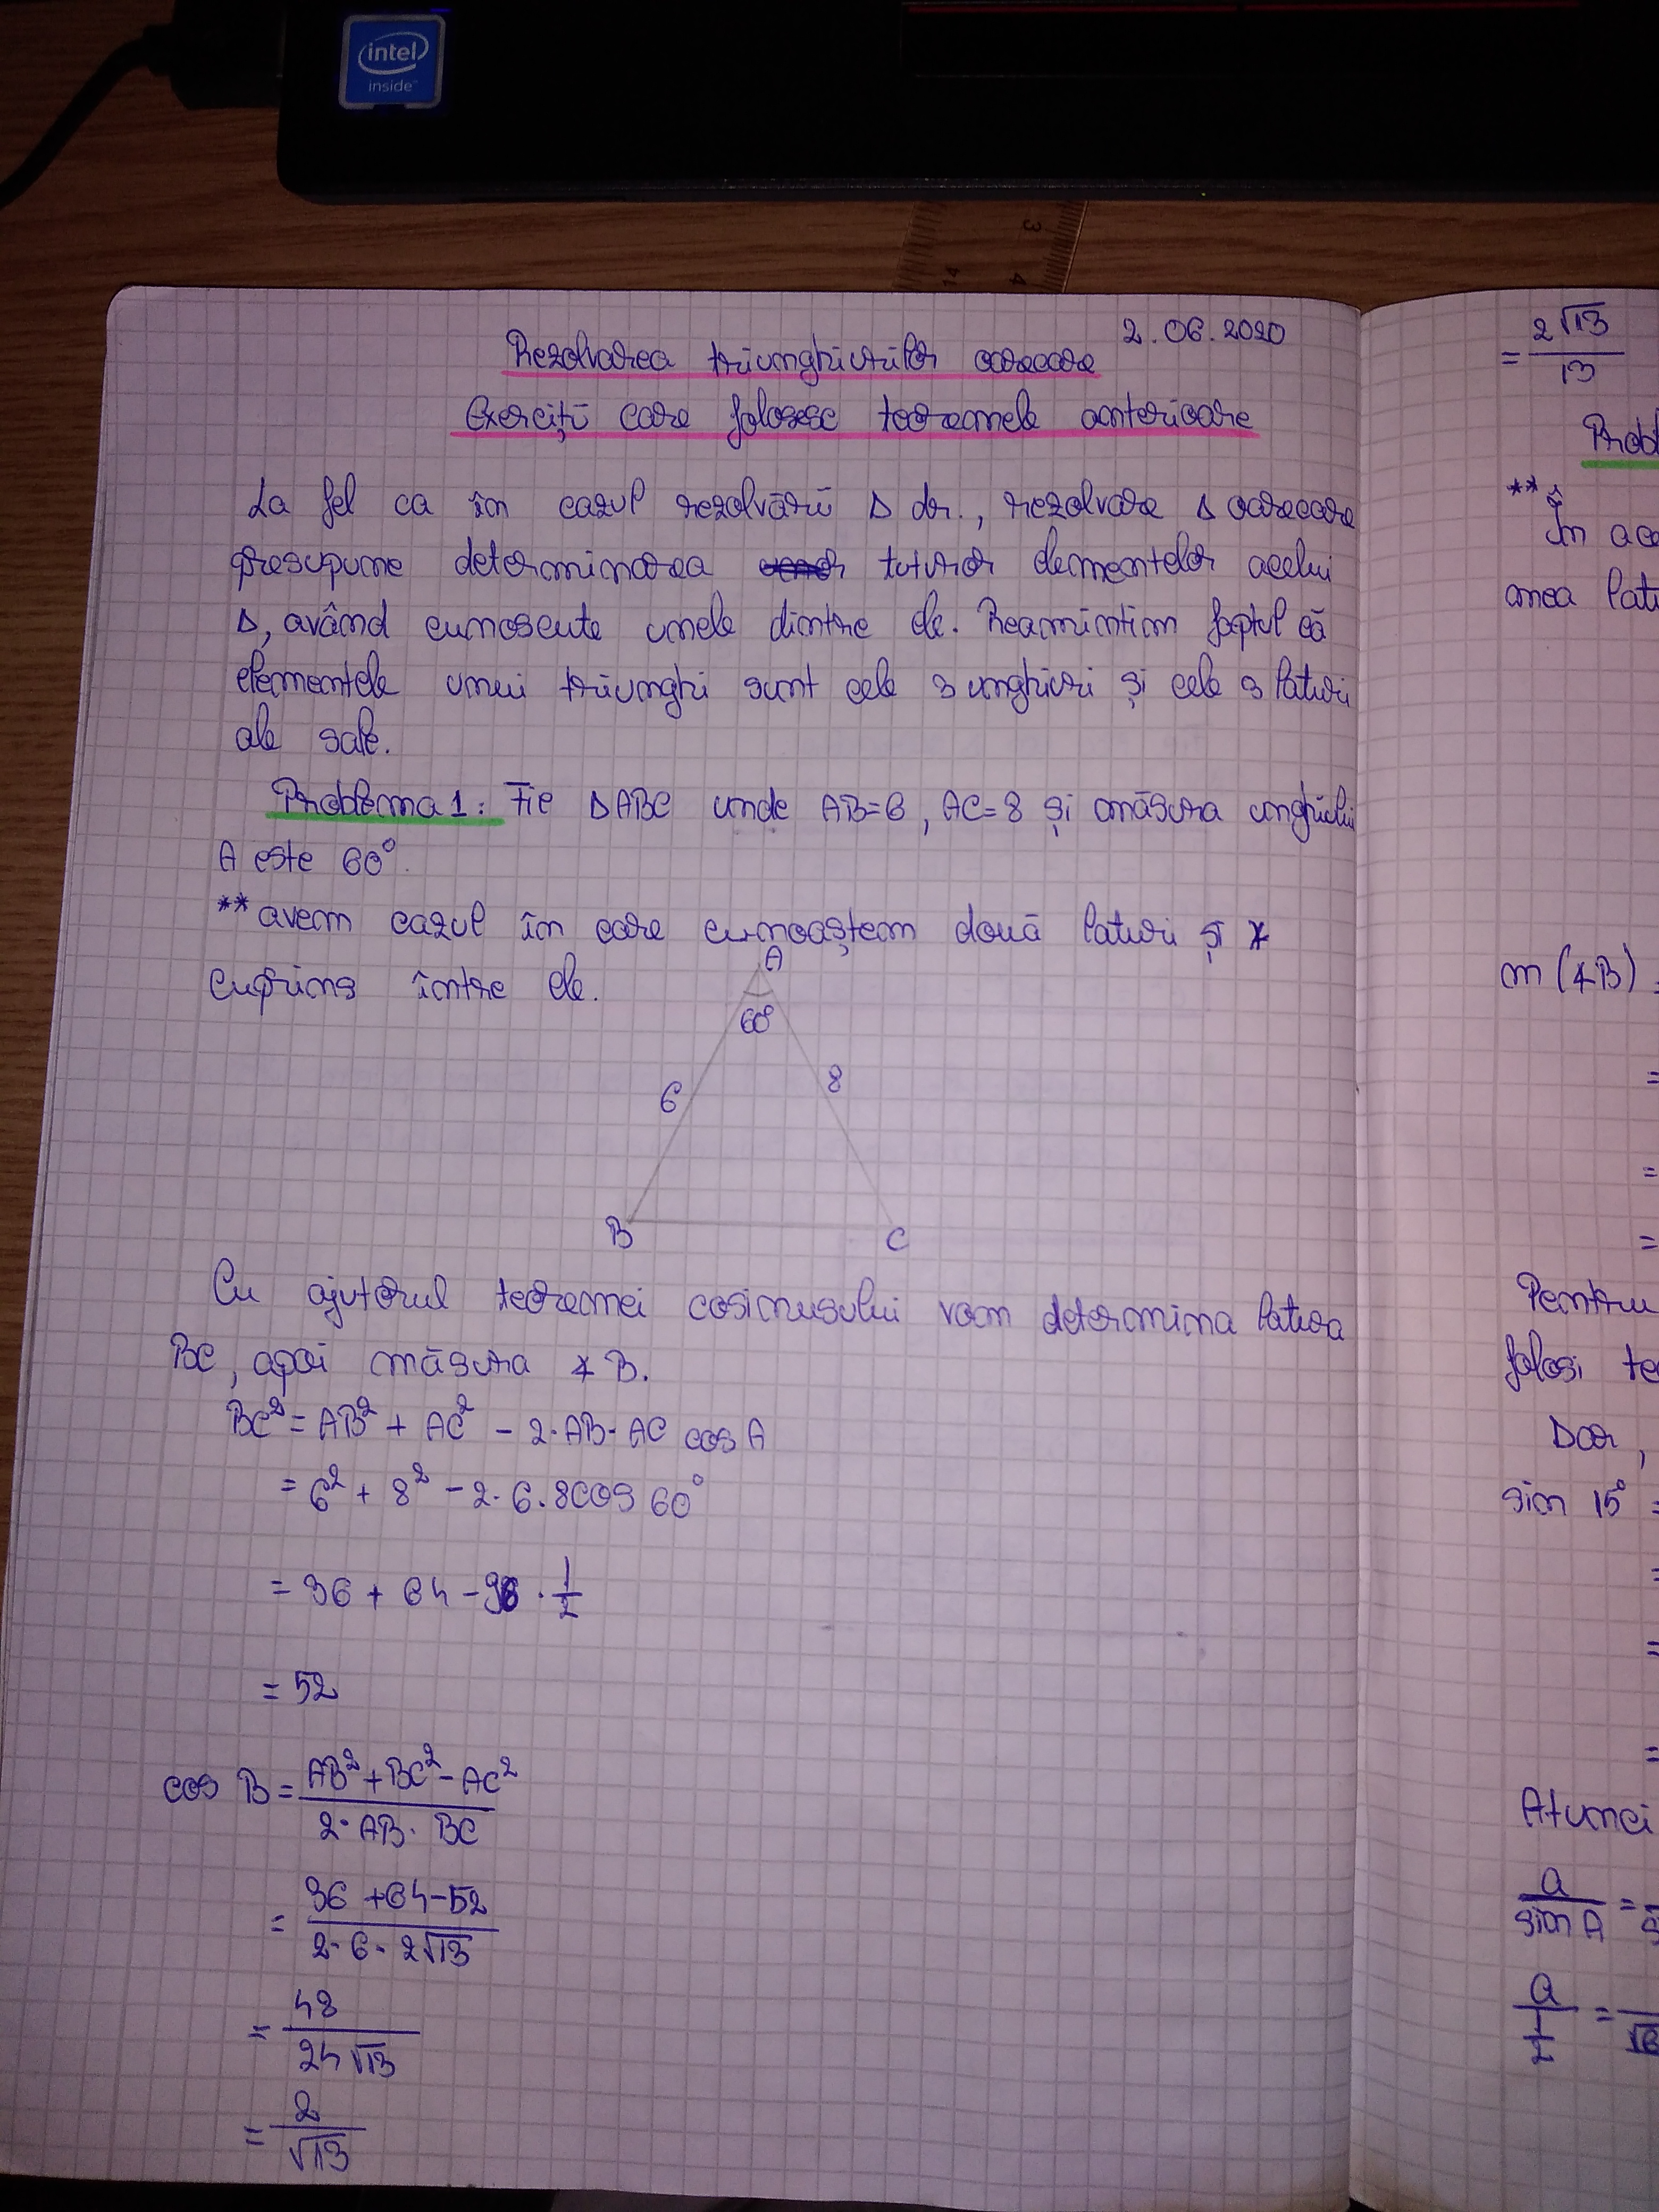 intel
inside
3
4
2.06.2020
Rezolvarea triunghiurilor oarecare
Exerciții care folosesc teoremele anterioare
La fel ca în cazul rezolvării Δ dr., rezolvare Δ oarecare
presupune determinarea tuturor elementelor acelui
Δ, având cunoscute unele dintre ele. Reamintim faptul că
elementele unui triunghi sunt cele 3 unghiuri și cele 3 laturi
ale sale.
Problema 1: Fie ΔABC unde AB=6, AC=8 și măsura unghiului
A este 60°.
**avem cazul în care cunoaștem două laturi și ∢
cuprins între ele.
A
60°
6
8
B
C
Cu ajutorul teoremei cosinusului vom determina latura
BC, apoi măsura ∢ B.
BC² = AB² + AC² - 2·AB·AC cos A
= 6² + 8² - 2·6·8cos 60°
= 36 + 64 - 96 · 1/2
= 52
cos B = (AB² + BC² - AC²)/(2·AB·BC)
= (36 + 64 - 52)/(2·6·2√13)
= 48/(24√13)
= 2/√13
= 2√13/13
Probl
** În ace
anea latu
m (∢B) =
=
=
=
Pentru
folosi te
Dar,
sin 15° =
=
=
=
Atunci
a/sin A =
a/(1/2) =